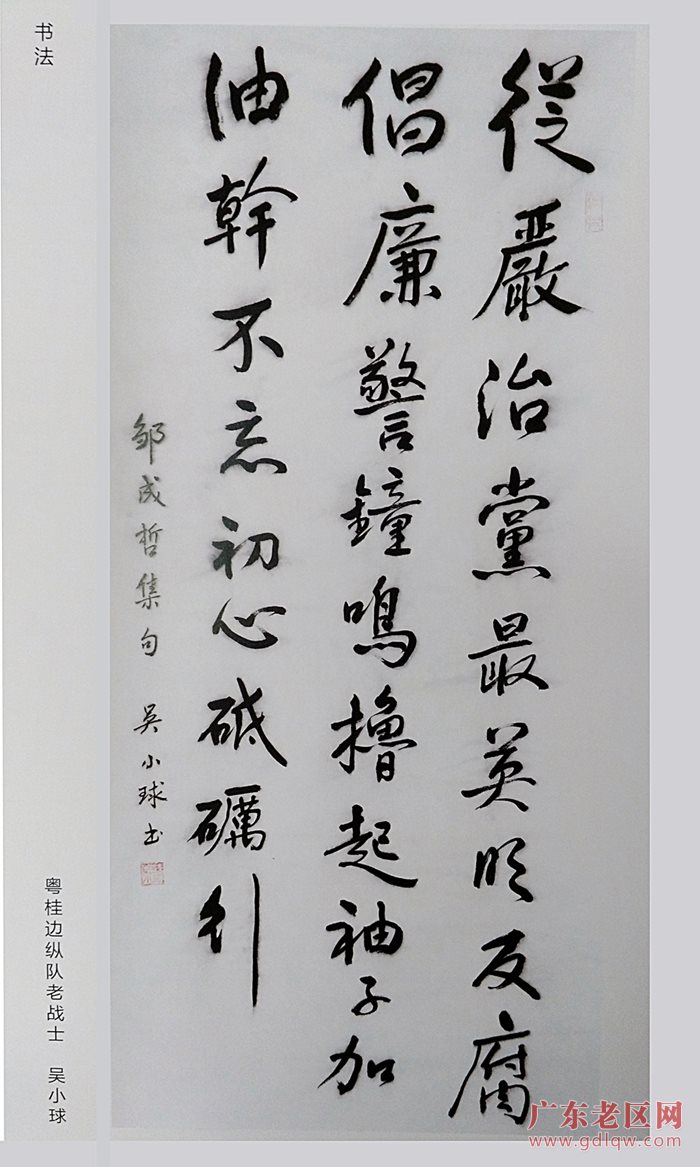 從嚴治黨最英明反腐
倡廉警鐘鳴擼起袖子加
油幹不忘初心砥礪行
邹成哲集句 吴小球书
书法
粤桂边纵队老战士 吴小球
广东老区网
www.gdlqw.com